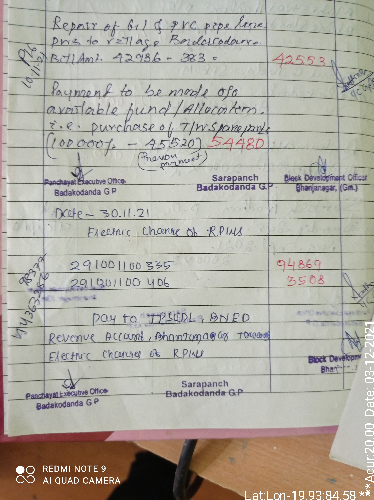 Repair of G.I & PVC pipe line
Prus to village Badakodanda
Bill Amt. 42936 - 383 =
42553
Payment to be made o/o
available fund/Allocation.
i.e. purchase of T/W spare parts
(100000/- - 45520) 54480
Panchayat Executive Officer
Badakodanda G.P
Sarapanch
Badakodanda G.P
Block Development Officer
Bhanjanagar, (Gm.)
Date - 30.11.21
Electric Charge of R.Plus
291001100335
94869
291301100406
3508
Pay to TPSODL, BNED
Revenue Account, Bhanjanagar
Electric Charges of R.Plus
Block Developm
Bhan
Panchayat Executive Officer
Badakodanda G.P
Sarapanch
Badakodanda G.P
REDMI NOTE 9
AI QUAD CAMERA
Lat:Lon-19.93:84.58 ***Acur:20.00 Date:03-12-2021